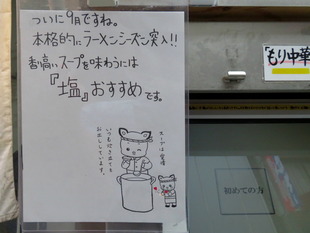 ついに9月ですね。
本格的にラーメンシーズン突入!!
香り高いスープを味わうには
『塩』おすすめです。
スープは愛情
いつも炊き立てを
お出ししています。
もり中華
初めての方